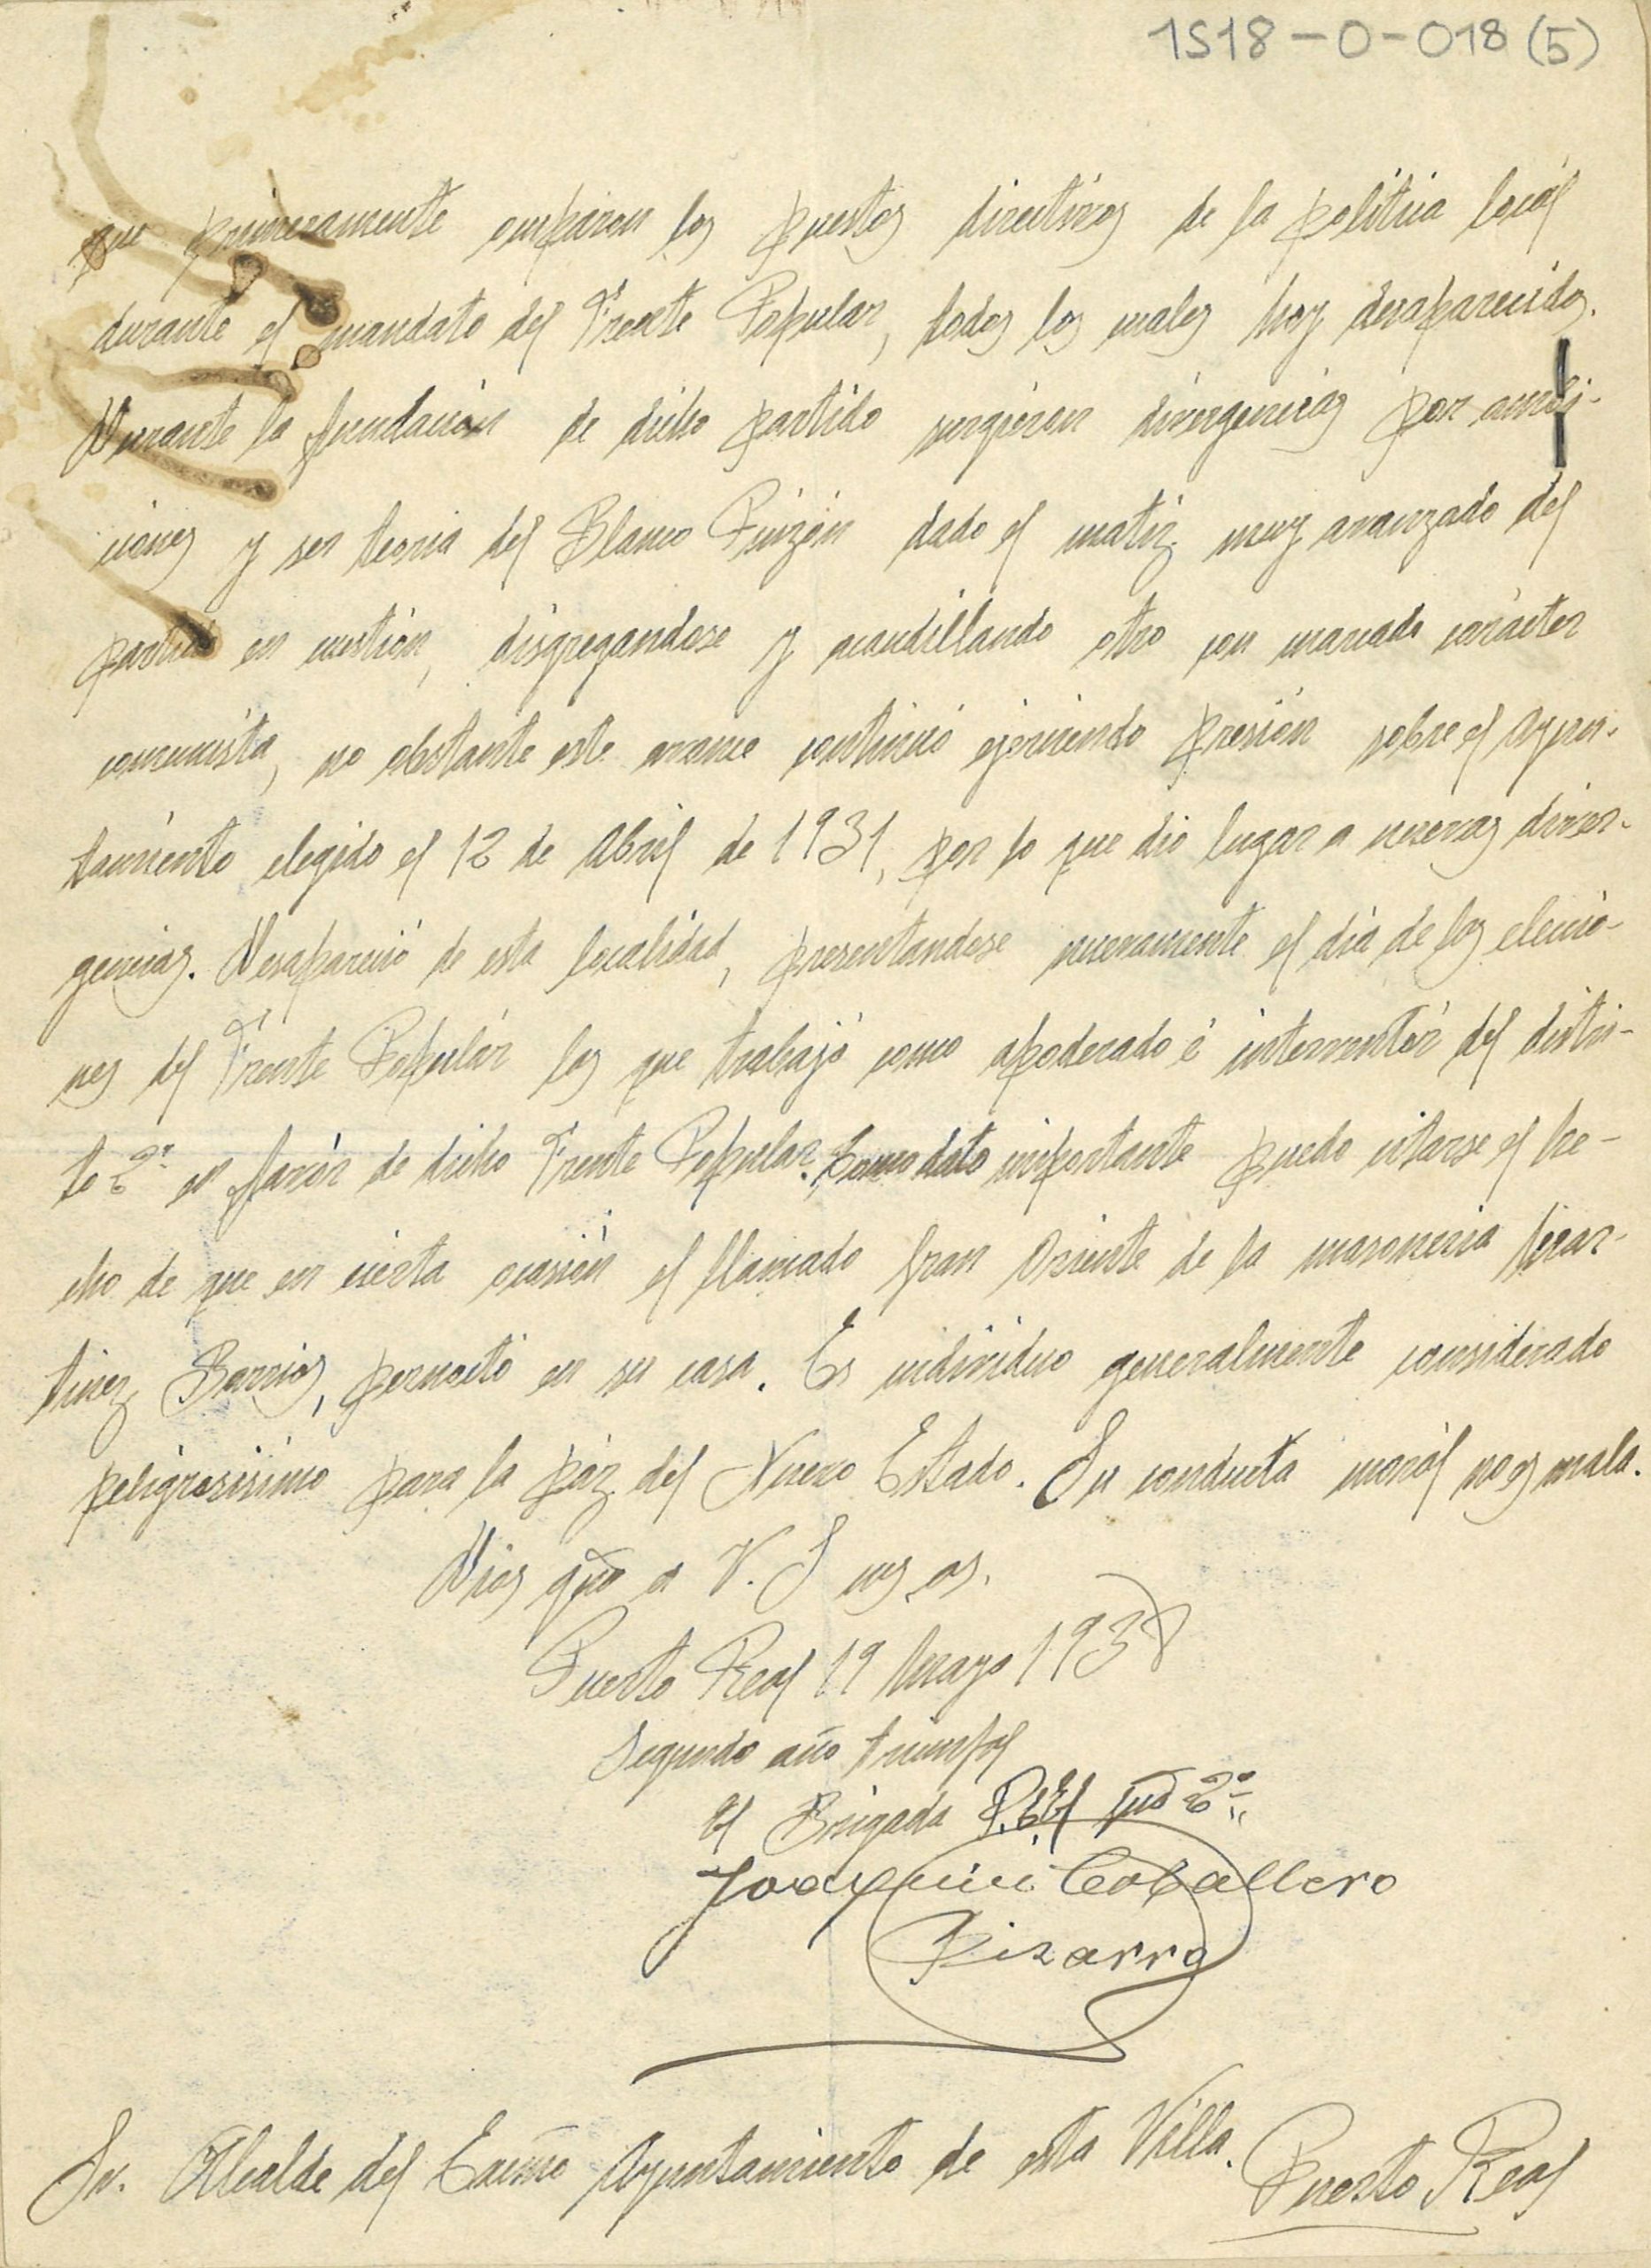 1S18-0-018 (5)
que primeramente ocuparon los puestos directivos de la politica locál
durante el mandato del Frente Popular, todos los cuales hoy desaparecidos.
Durante la fundación de dicho partido surgieron divergencias por ambi-
ciones y ser teoria del Blanco Pinzón dado el matiz muy avanzado del
partido en cuestión, disgregandose y acaudillando otro con marcado carácter
comunista, no obstante este avance continuó ejerciendo presión sobre el Ayun-
tamiento elegido el 12 de Abril de 1931, por lo que dio lugar a nuevas diver-
gencias. Desapareció de esta localidad, presentandose nuevamente el dia de las eleccio-
nes del Frente Populár las que trabajó como apoderado é interventór del distri-
to 2º en favór de dicho Frente Popular. Como dato importante puedo citarse el he-
cho de que en cierta ocasión el llamado Gran Oriente de la masoneria Mar-
tinez Barrios, pernoctó en su casa. Es individuo generalmente considerado
peligrosisimo para la páz del Nuevo Estado. Su conducta morál no es mala.
Dios gue a V. S ms as.
Puerto Real 19 Mayo 1938
Segundo año triunfal
El Brigada
Joaquin Caballero
Pizarro
Sr. Alcalde del Excmo Ayuntamiento de esta Villa. Puerto Real